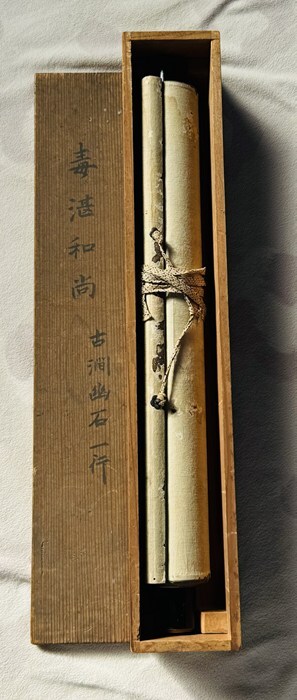 毒湛和尚
古澗幽石一行